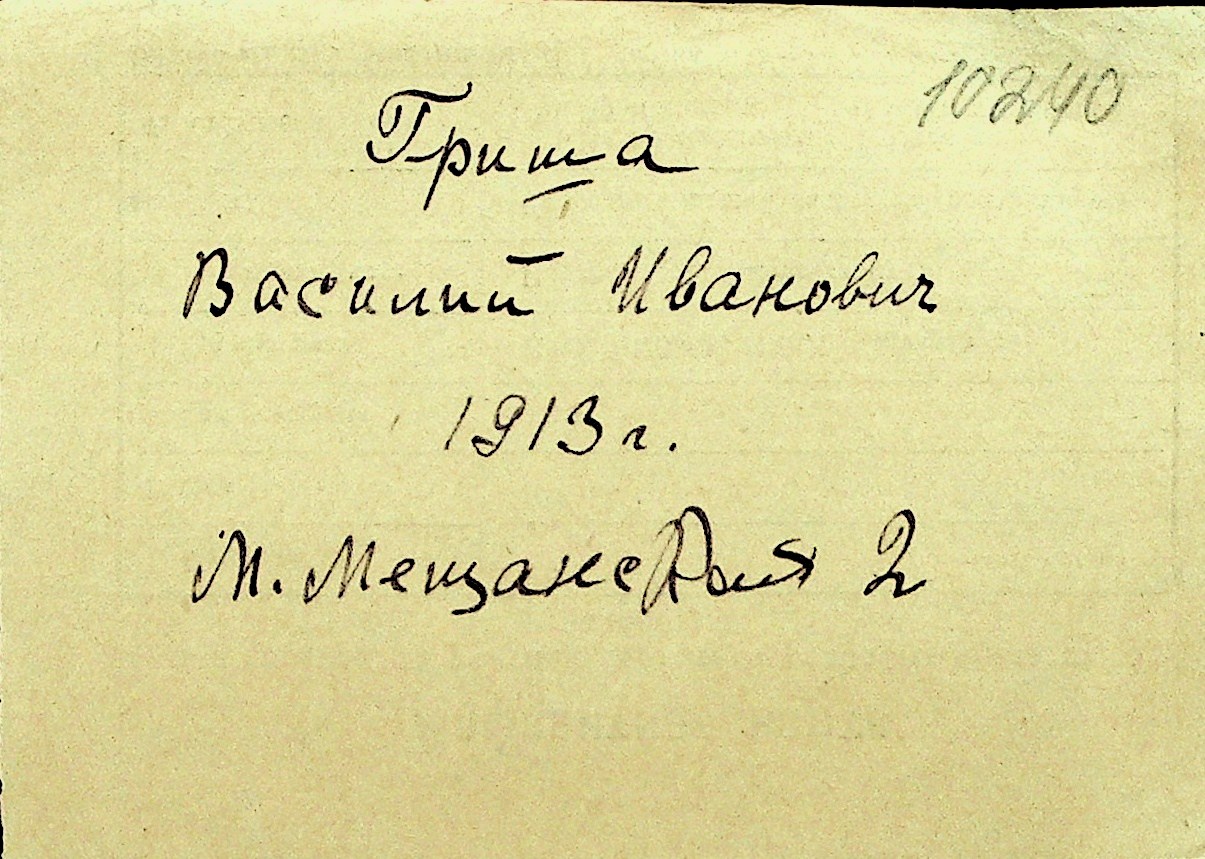 10240
Гриша
Василий Иванович
1913 г.
М. Мещанская 2